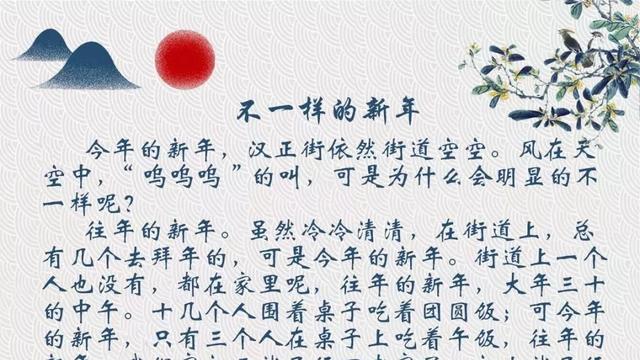 不一样的新年
今年的新年，汉正街依然街道空空。风在天
空中，“呜呜呜”的叫，可是为什么会明显的不
一样呢？
往年的新年。虽然冷冷清清，在街道上，总
有几个去拜年的，可是今年的新年。街道上一个
人也没有，都在家里呢，往年的新年，大年三十
的中午。十几个人围着桌子吃着团圆饭；可今年
的新年，只有三个人在桌子上吃着午饭，往年的